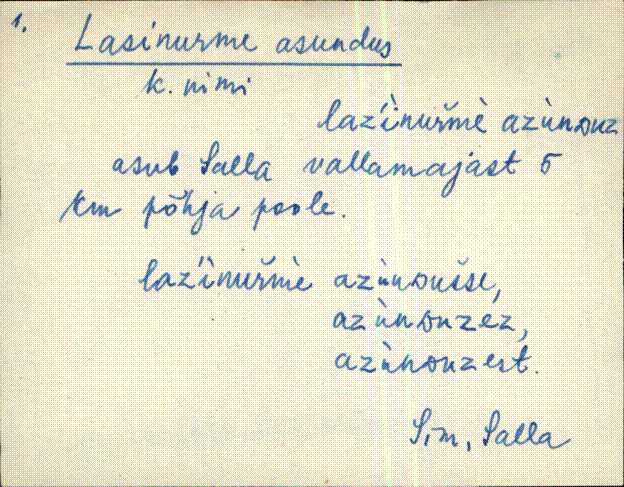 1.
Lasinurme asundus
k. nimi
laźìnuŕmè azùnᴅuz
asub Salla vallamajast 5
km põhja poole.
laźìnuŕmè azùnᴅusse,
azùnᴅuzez,
azùnᴅuzest.
Sim, Salla